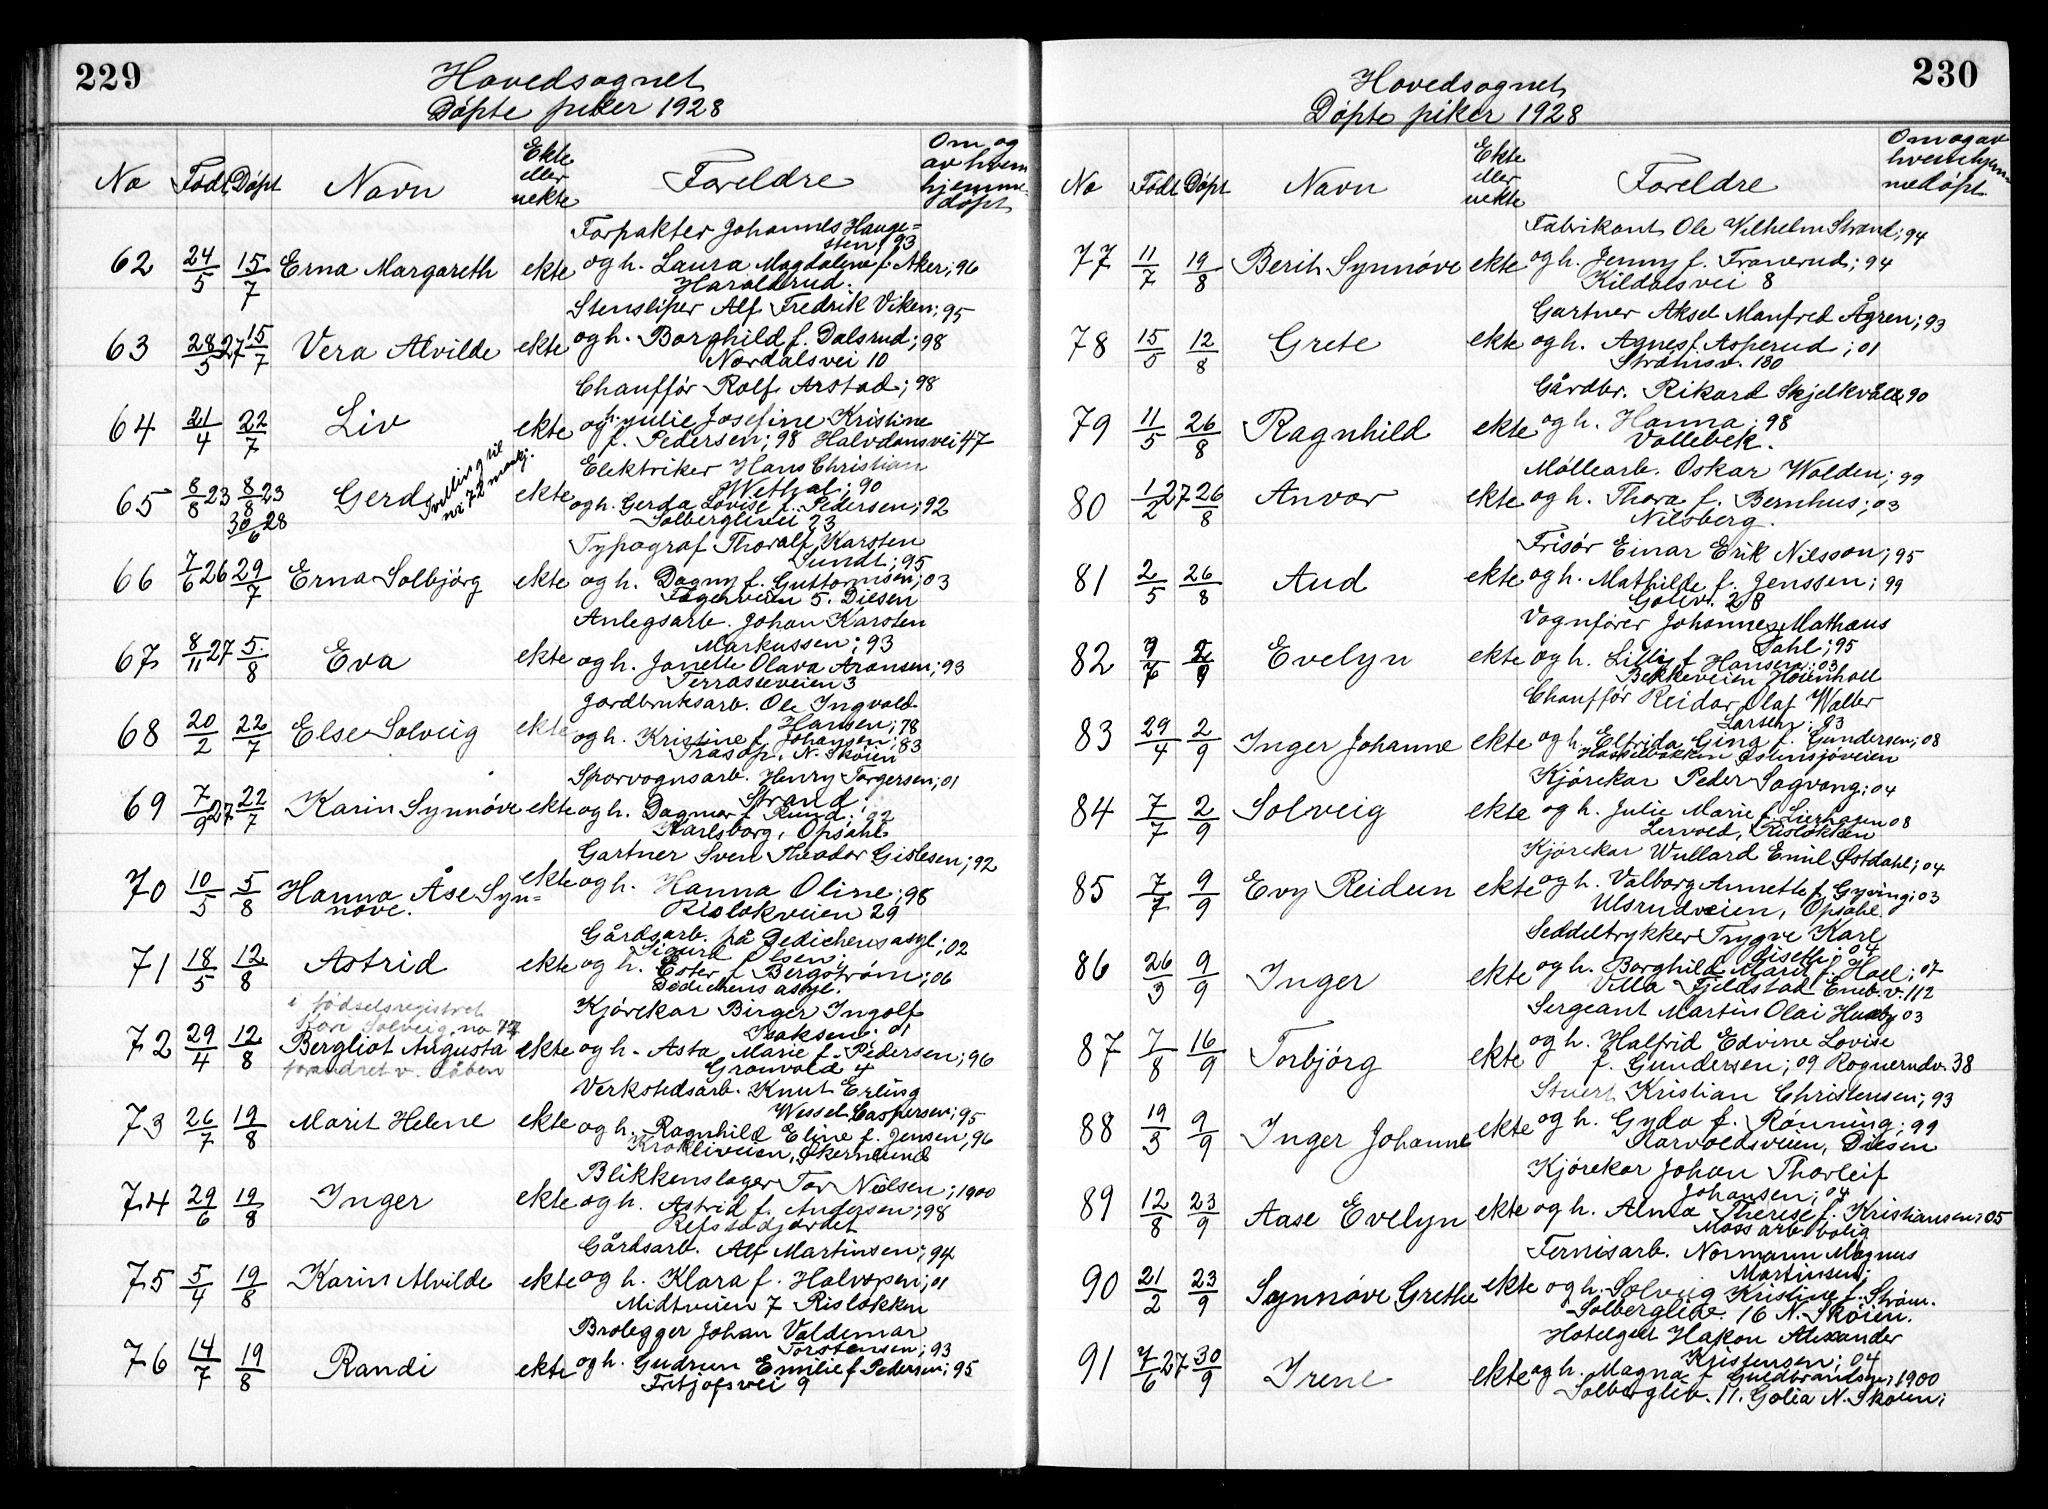 229
Hovedsognet
Døpte piker 1928
No Født Døpt Navn Ekte eller uekte Foreldre Om og av hvem hjemmedøpt
Forpakter Johannes Hauge=
sten, 93
62 24/5 15/7 Erna Margareth ekte og h. Laura Magdalene f. Aker; 96
Haraldrud.
Stensliper Alf Fredrik Viken; 95
63 28/5 27 15/7 Vera Alvilde ekte og h. Borghild f. Dalsrud; 98
Nordalsvei 10
Chauffør Rolf Arstad; 98
64 21/4 22/7 Liv ekte og h. Julie Josefine Kristine
f. Pedersen; 98 Halvdansvei 47
Elektriker Hans Christian
Wethal; 90
65 8/8 23 8/8 23 Gerd Tvilling til no 72 mankj. ekte og h. Gerda Lovise f. Pedersen; 92
30/6 28 Solberglivei 23
Typograf Thoralf Karsten
Sundt; 95
66 7/6 26 29/7 Erna Solbjørg ekte og h. Dagny f. Guttormsen; 03
Fagerveien 5. Disen
Anlegsarb. Johan Karsten
Markussen; 93
67 8/11 27 5/8 Eva ekte og h. Janette Olava Aronsen; 93
Terrasseveien 3
Jordbruksarb. Ole Ingvald
Hansen; 78
68 20/2 22/7 Else Solveig ekte og h. Kristine f. Johansen; 83
Trasop, N. Skøien
Sporvognsarb. Henry Torgersen; 01
Strand
69 7/9 27 22/7 Karin Synnøve ekte og h. Dagmar f. Rund;
Karlsborg, Opsahl
Gartner Sven Theodor Gislesen; 92
70 10/5 5/8 Hanna Åse Syn= ekte og h. Hanna Oline; 98
nøve. Risløkveien 29
Gårdsarb. på Dedichens asyl; 02
Sigurd Olsen;
71 18/5 12/8 Astrid ekte og h. Ester f. Bergstrøm; 06
Dedichens asyl.
i fødselsregistret
Tore Solveig, no 77
Kjørekar Birger Ingolf
Isaksen; 01
72 29/4 12/8 Bergliot Augusta ekte og h. Asta Marie f. Pedersen; 96
forandret v. dåben Granvold 4
Verkstedsarb. Knut Erling
Wessel Caspersen; 95
73 26/7 19/8 Marit Helene ekte og h. Ragnhild Eline f. Jensen; 96
Krokliveien, Økernlund
Blikkenslager Tor Nielsen; 1900
74 29/6 19/8 Inger ekte og h. Astrid f. Andersen; 98
Refstadjordet
Gårdsarb. Alf Martinsen; 94
75 5/4 19/8 Karin Alvilde ekte og h. Klara f. Halvspen; 01
Midtveien 7 Risløkken
Brolegger Johan Valdemar
Torstensen; 93
76 14/7 19/8 Randi ekte og h. Gudrun Emilie f. Pedersen; 95
Fritjofsvei 9
230
Hovedsognet
Døpte piker 1928
No Født Døpt Navn Ekte eller uekte Foreldre Om og av hvem hjemmedøpt
Fabrikant Ole Vilhelm Strand; 94
77 11/7 19/8 Berit Synnøve ekte og h. Jenny f. Franerud; 94
Kildalsvei 8
Gartner Aksel Manfred Ågren; 93
78 15/5 12/8 Grete ekte og h. Agnes f. Asperud; 01
Strømsv. 130
Gårdbr. Rikard Skjelkvåle 90
79 11/5 26/8 Ragnhild ekte og h. Hanna; 98
Vollebek.
Møllearb. Oskar Wolden; 99
80 1/2 27 26/8 Anvor ekte og h. Thora f. Bernhus; 03
Nilsberg.
Frisør Einar Erik Nilsson; 95
81 2/5 26/8 Aud ekte og h. Mathilde f. Jenssen; 99
Goliv. 2B
Vognfører Johannes Mathæus
Dahl; 95
82 7/7 2/9 Evelyn ekte og h. Lilly f. Hansen; 03
Bekkeveien Høienhall
Chauffør Reidar Olaf Walter
Larsen; 93
83 29/4 2/9 Inger Johanne ekte og h. Elfrida Gina f. Gundersen; 08
Hasselbakken Østensjøveien
Kjørekar Peder Sagvang; 04
84 7/7 2/9 Solveig ekte og h. Julie Marie f. Lierhagen 08
Lervold, Risløkken
Kjørekar Wullard Emil Østdahl; 04
85 7/7 9/9 Evy Reidun ekte og h. Valborg Annette f. Gyving; 03
Ulsrudveien, Opsahl.
Seddeltrykker Trygve Karl
Gisetli; 04
86 26/3 9/9 Inger ekte og h. Borghild Marit f. Hoel; 07
Villa Fjeldstad Eneb.v. 112
Sergeant Martin Olai Huseby 03
87 7/8 16/9 Torbjørg ekte og h. Halfrid Edvine Lovise
f. Gundersen; 09 Rognerudv. 38
Stuert Kristian Christensen; 93
88 19/3 9/9 Inger Johanne ekte og h. Gyda f. Rønning; 99
Harvoldsveien, Disen
Kjørekar Johan Thorleif
Johansen; 04
89 12/8 23/9 Aase Evelyn ekte og h. Alma Therese f. Kristiansen; 05
Moss arb. bolig
Fernisarb. Normann Magnus
Martinsen;
90 21/2 23/9 Synnøve Grethe ekte og h. Solveig Kristine f. Strøm.
Solbergliv. 16 N. Skøien.
Hotelgut Hakon Alexander
Kristensen; 04
91 7/6 27 30/9 Irene ekte og h. Magna f. Guldbrandsen; 1900
Solbergliv. 11. Golia N. Skøien;